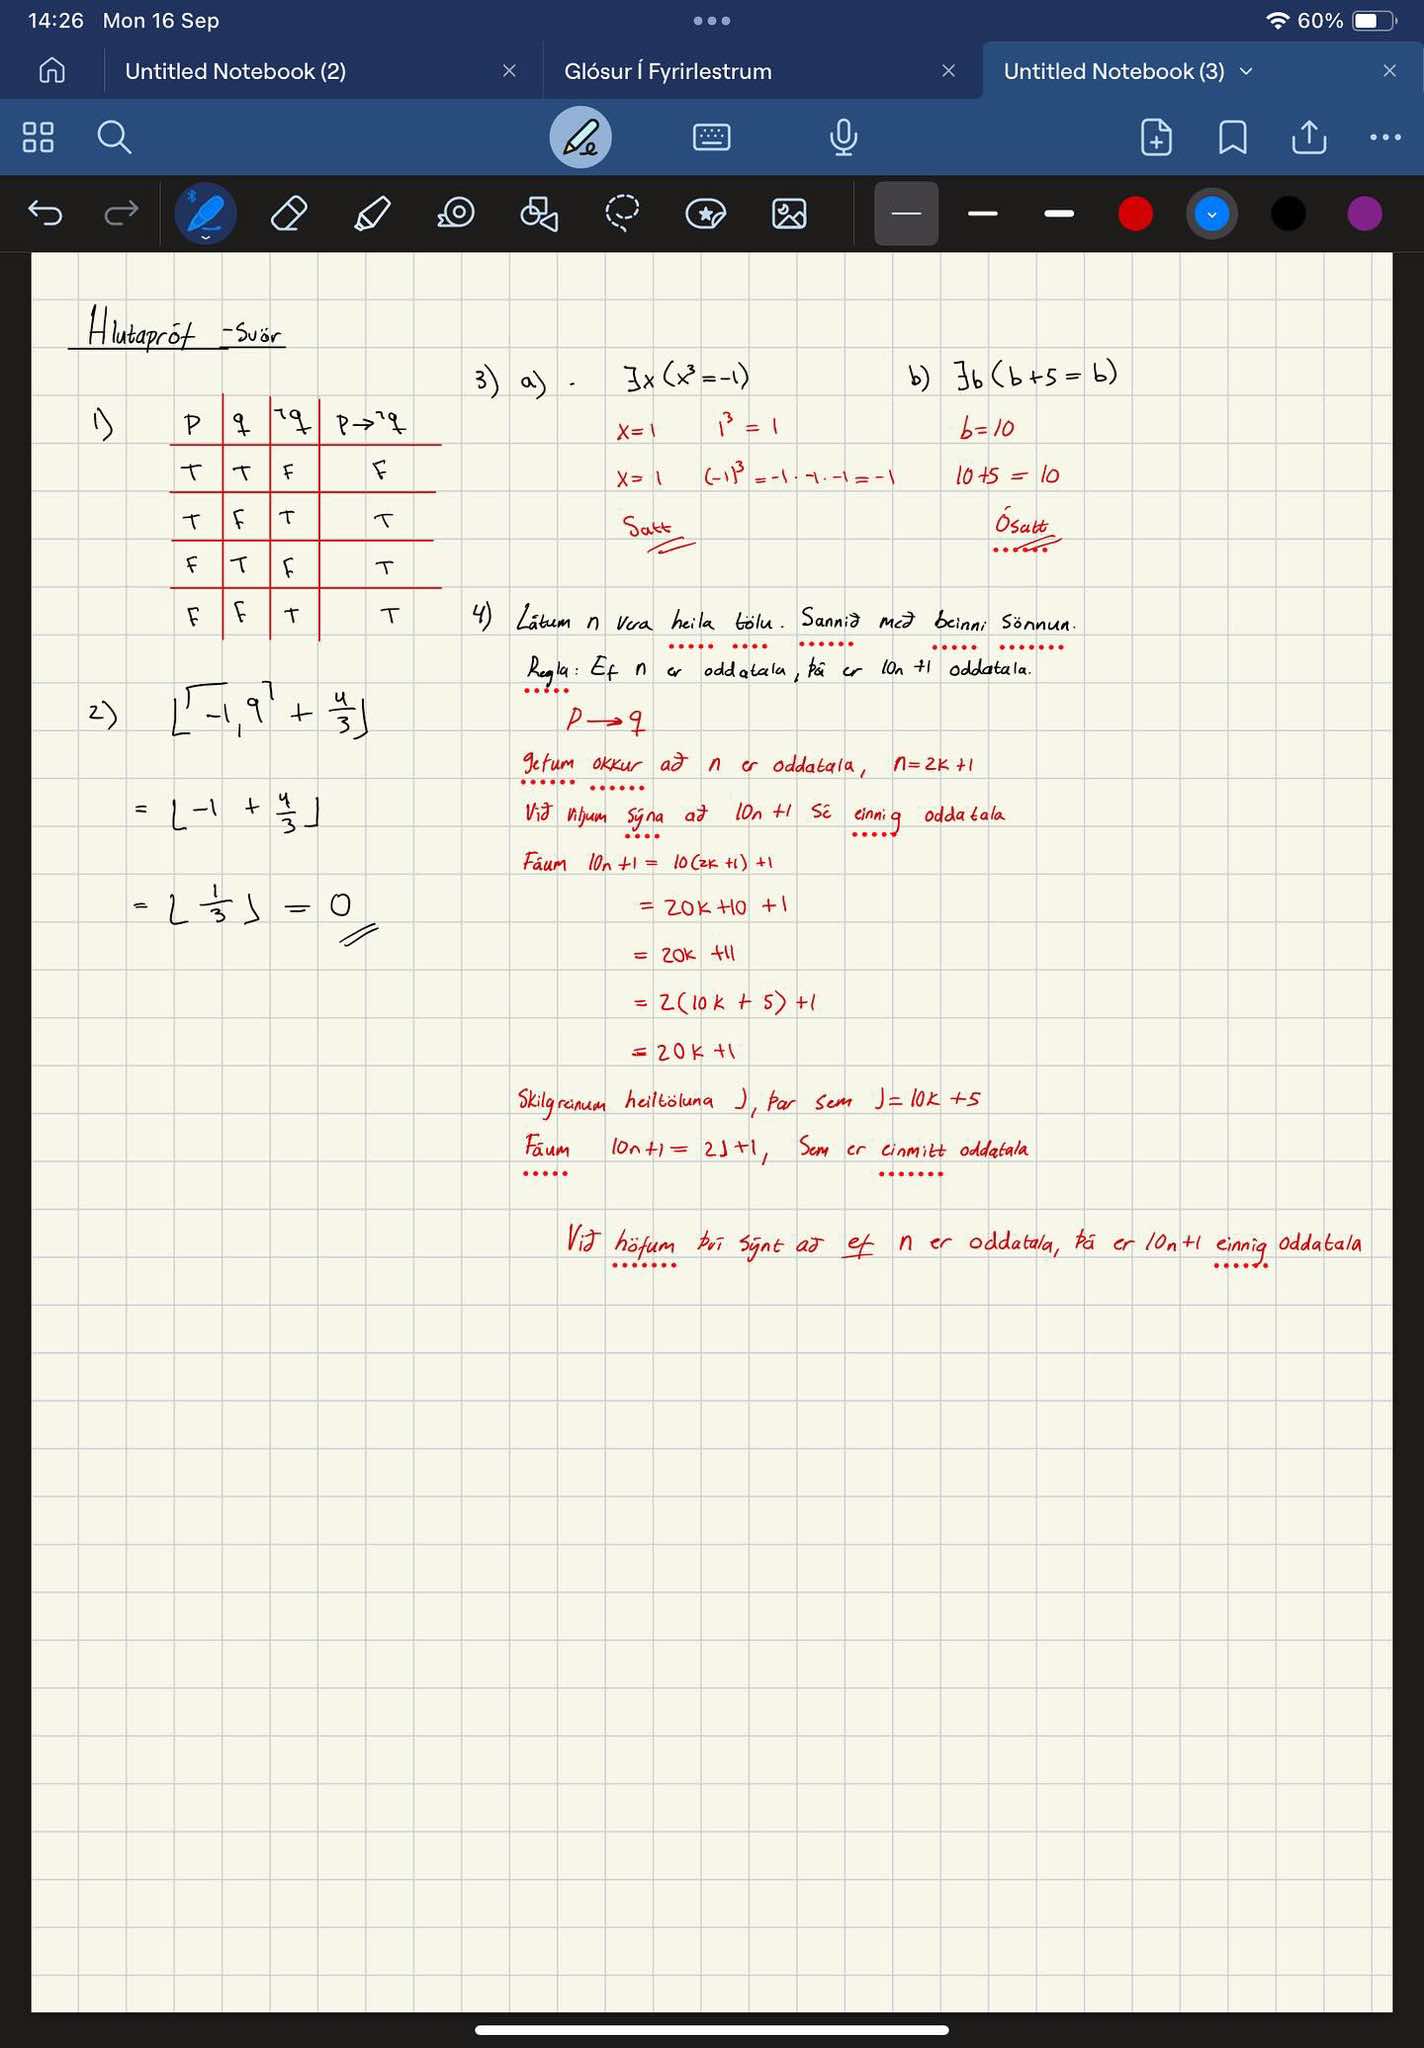 14:26 Mon 16 Sep
60%
Untitled Notebook (2)
Glósur Í Fyrirlestrum
Untitled Notebook (3)
Hlutapróf - svör
1)
p q ¬q p→¬q
T T F F
T F T T
F T F T
F F T T
2) ⌊⌈-1,9⌉ + 4/3⌋
= ⌊-1 + 4/3⌋
= ⌊1/3⌋ = 0
3) a) . ∃x(x³ = -1)
x=1 1³ = 1
x=1 (-1)³ = -1 · -1 · -1 = -1
Satt
b) ∃b(b+5 = b)
b=10
10+5 = 10
Ósatt
4) Látum n vera heila tölu. Sannið með beinni sönnun.
Regla: Ef n er oddatala, þá er 10n+1 oddatala.
p → q
gefum okkur að n er oddatala, n=2k+1
Við viljum sýna að 10n+1 sé einnig oddatala
Fáum 10n+1 = 10(2k+1)+1
= 20k+10+1
= 20k+11
= 2(10k+5)+1
= 20k+1
Skilgreinum heiltöluna J, þar sem J=10k+5
Fáum 10n+1 = 2J+1, Sem er einmitt oddatala
Við höfum því sýnt að ef n er oddatala, þá er 10n+1 einnig oddatala